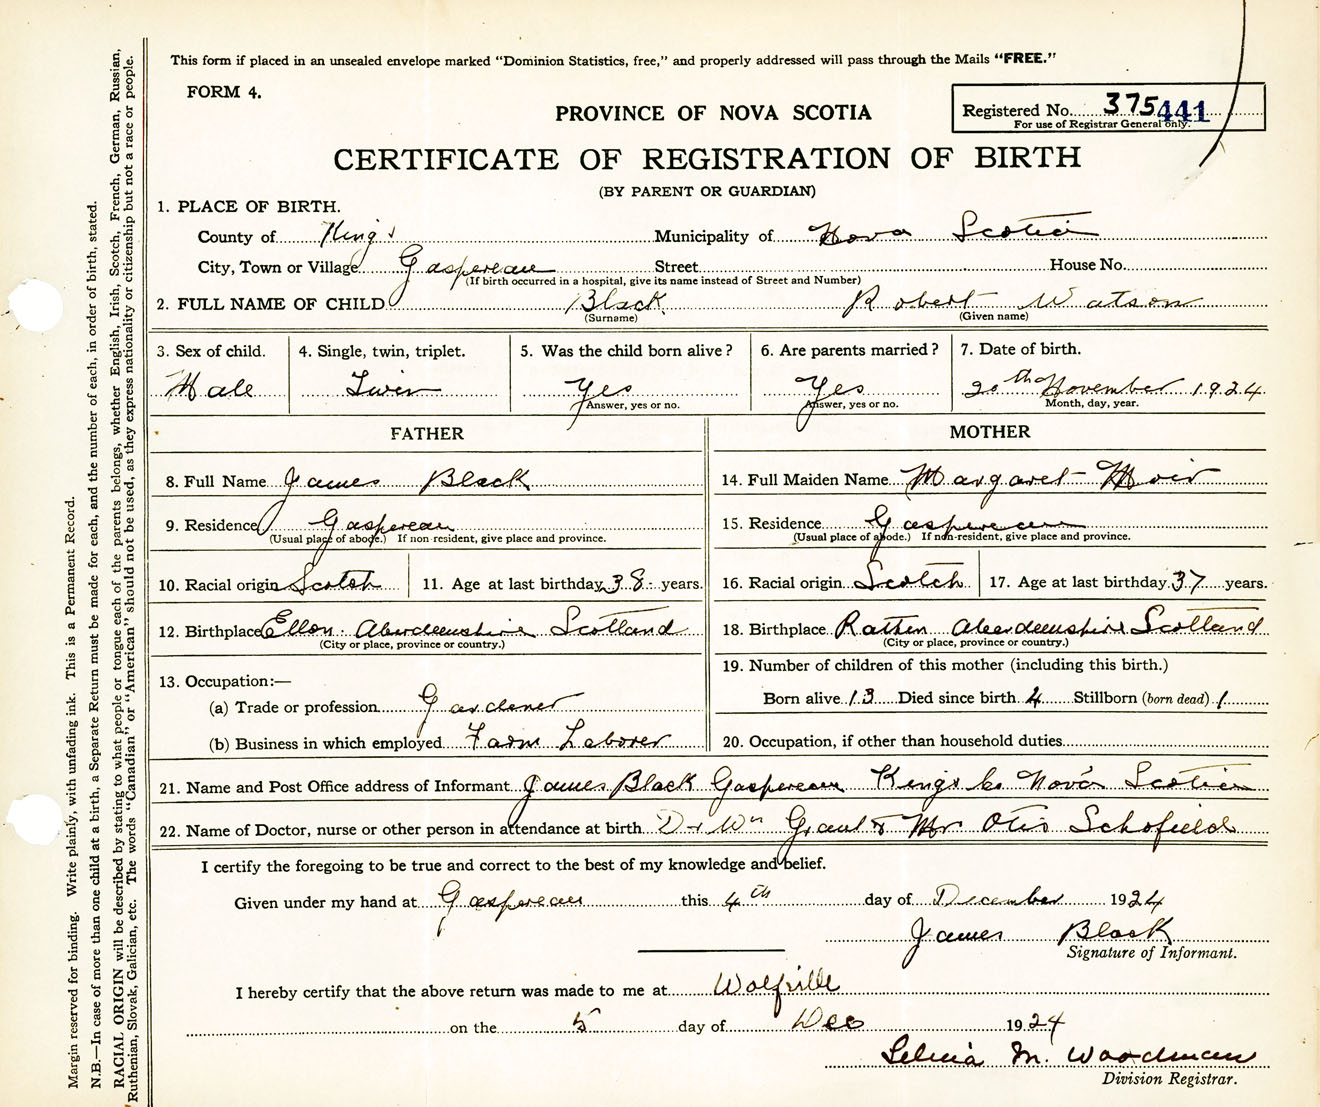 This form if placed in an unsealed envelope marked “Dominion Statistics, free,” and properly addressed will pass through the Mails “FREE.”
FORM 4.
Registered No. 375441
For use of Registrar General only.
PROVINCE OF NOVA SCOTIA
CERTIFICATE OF REGISTRATION OF BIRTH
(BY PARENT OR GUARDIAN)
1. PLACE OF BIRTH.
County of King's Municipality of Nova Scotia
City, Town or Village Gaspereau Street House No.
(If birth occurred in a hospital, give its name instead of Street and Number)
2. FULL NAME OF CHILD Black Robert Watson
(Surname) (Given name)
3. Sex of child. 4. Single, twin, triplet. 5. Was the child born alive? 6. Are parents married? 7. Date of birth.
Male Twin Yes Yes 20th November 1924
Answer, yes or no. Answer, yes or no. Month, day, year.
FATHER MOTHER
8. Full Name James Black 14. Full Maiden Name Margaret Moir
9. Residence Gaspereau 15. Residence Gaspereau
(Usual place of abode.) If non-resident, give place and province. (Usual place of abode.) If non-resident, give place and province.
10. Racial origin Scotch 11. Age at last birthday 38 years. 16. Racial origin Scotch 17. Age at last birthday 37 years.
12. Birthplace Ellon Aberdeenshire Scotland 18. Birthplace Aberdeenshire Scotland
(City or place, province or country.) (City or place, province or country.)
19. Number of children of this mother (including this birth.)
13. Occupation:—
(a) Trade or profession Gardener Born alive 13 Died since birth 4 Stillborn (born dead) 1
(b) Business in which employed Farm Laborer 20. Occupation, if other than household duties
21. Name and Post Office address of Informant James Black Gaspereau Kings Co Nova Scotia
22. Name of Doctor, nurse or other person in attendance at birth Dr Wm Grant & Mr Otis Schofield
I certify the foregoing to be true and correct to the best of my knowledge and belief.
Given under my hand at Gaspereau this 4th day of December 1924
James Black
Signature of Informant.
I hereby certify that the above return was made to me at Wolfville
on the 5 day of Dec 1924
M. Woodman
Division Registrar.
Margin reserved for binding. Write plainly, with unfading ink. This is a Permanent Record.
N.B.—In case of more than one child at a birth, a Separate Return must be made for each, and the number of each, in order of birth, stated.
RACIAL ORIGIN will be described by stating to what people or tongue each of the parents belongs, whether English, Irish, Scotch, French, German, Russian,
Ruthenian, Slovak, Galician, etc. The words “Canadian” or “American” should not be used, as they express nationality or citizenship but not a race or people.